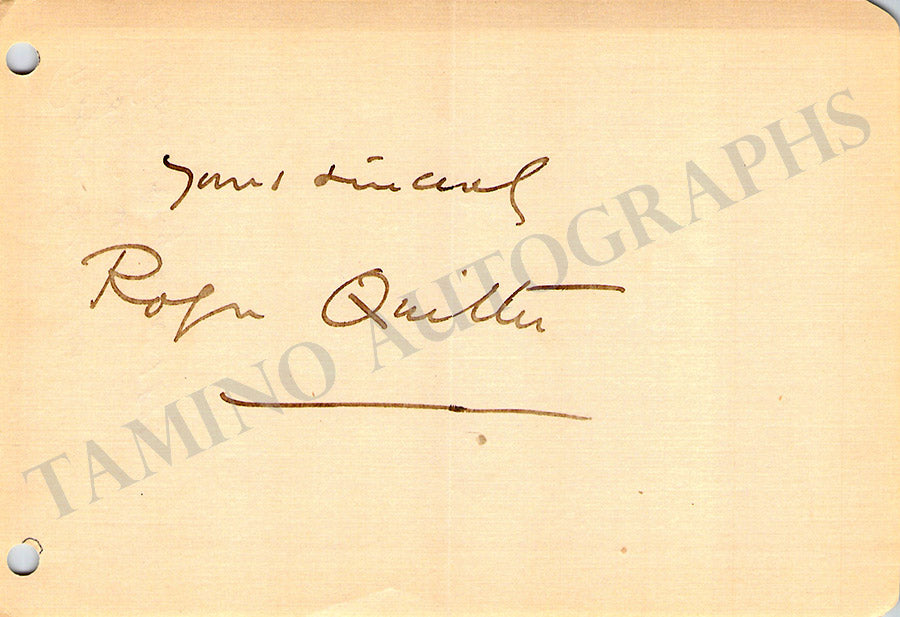 Yours sincerely
Roger Quilter
TAMINO AUTOGRAPHS